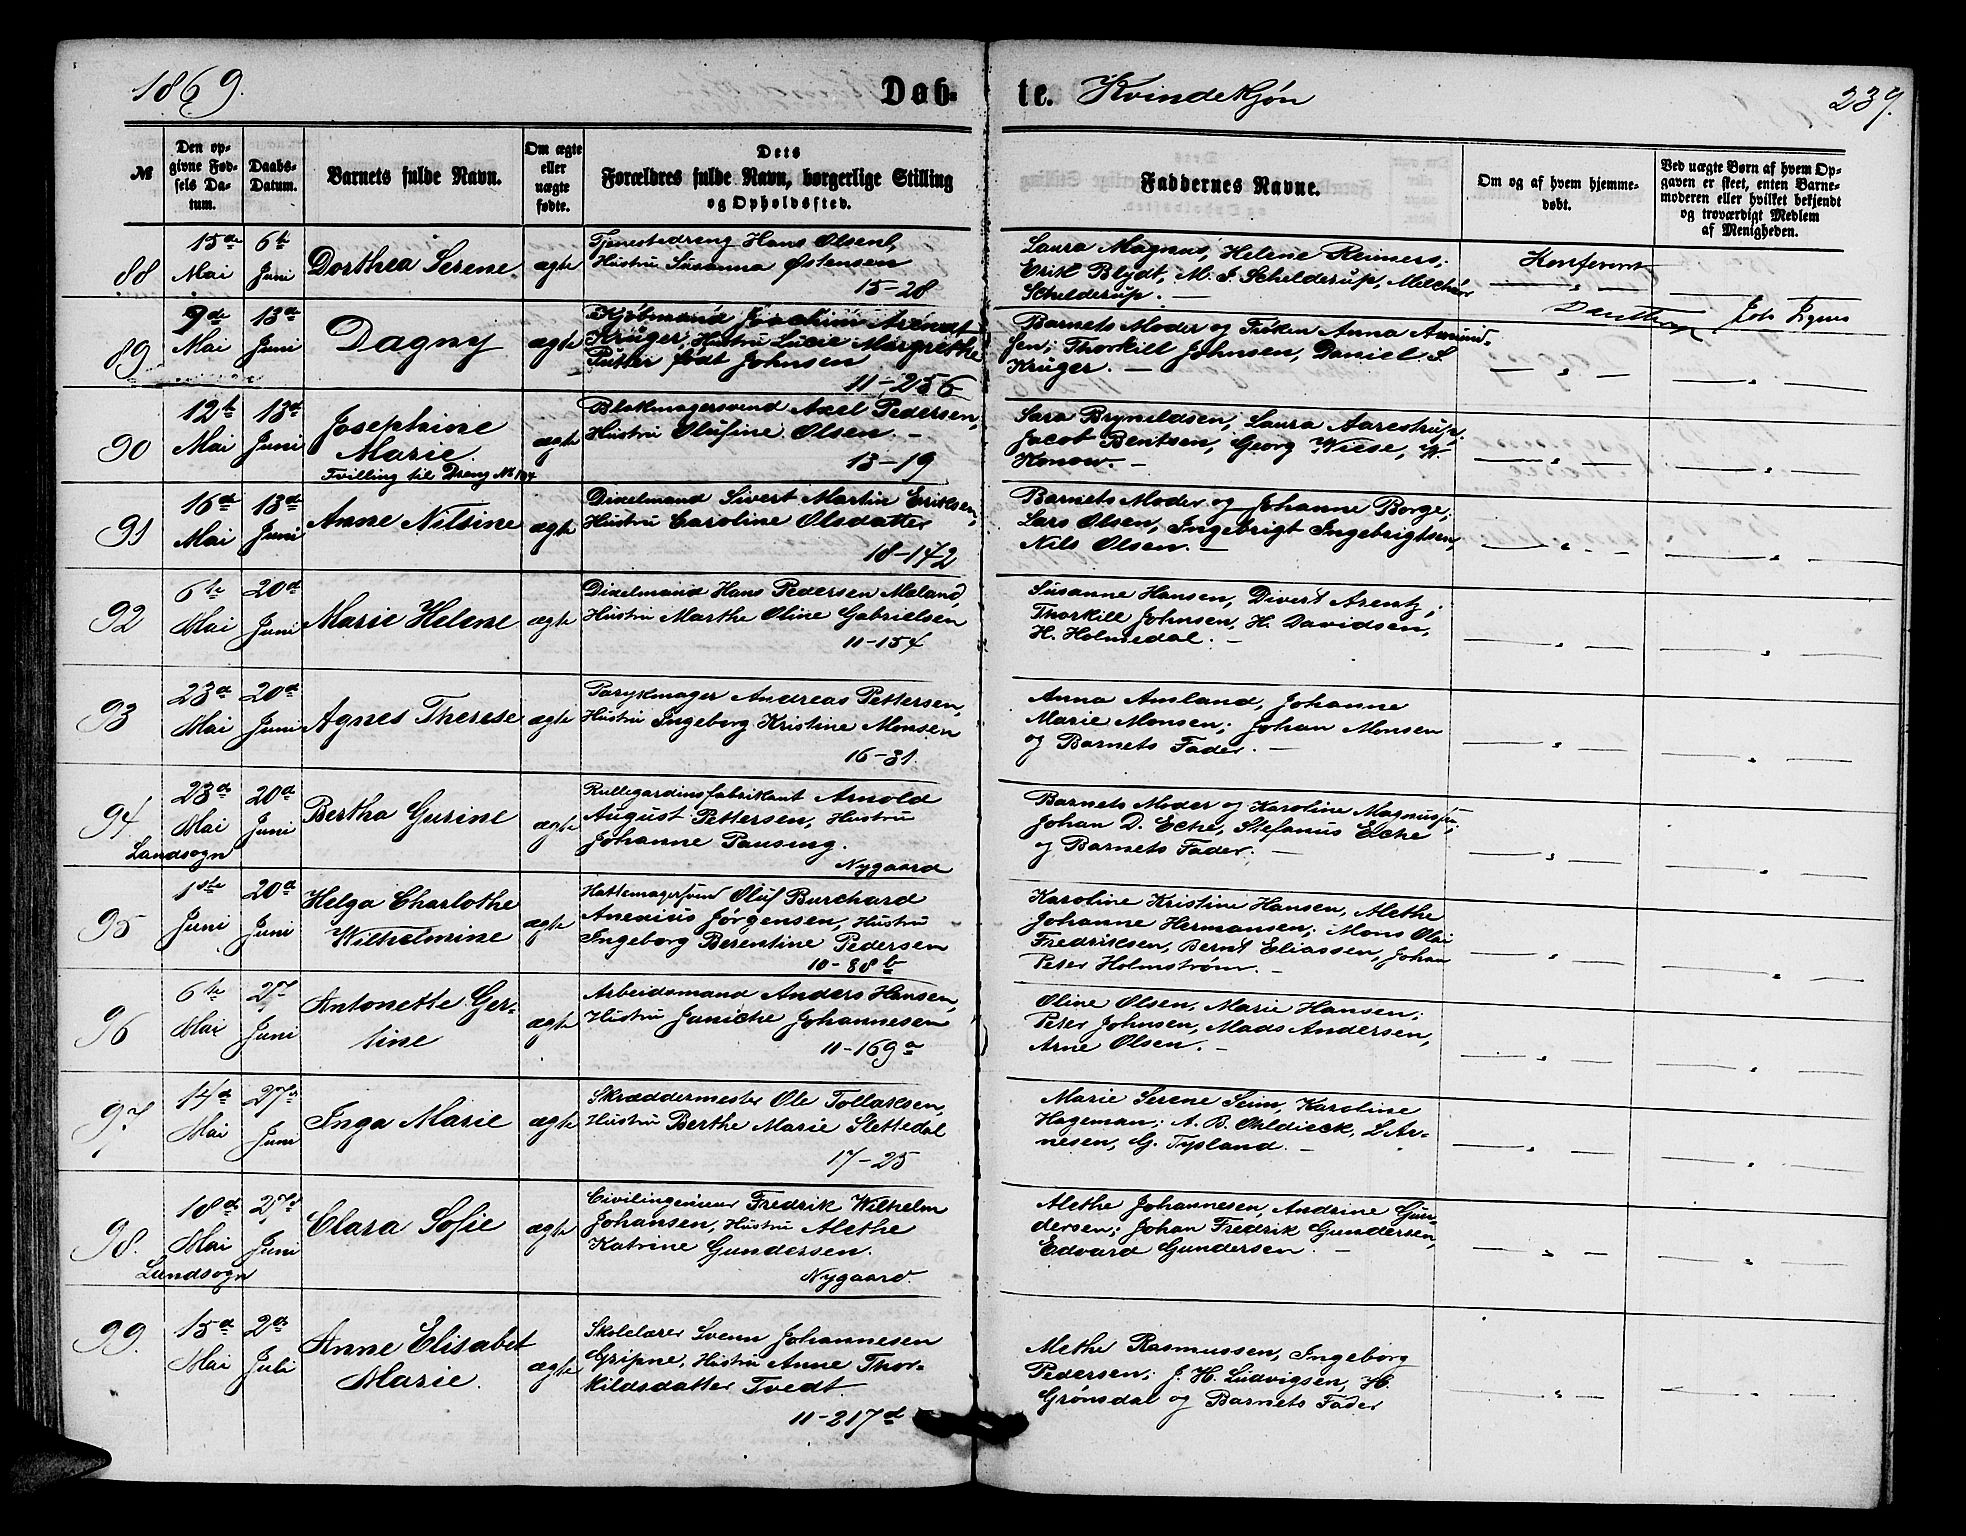 1869.
Døb-
te. Kvindekjøn
239.
№
Den opgivne Fødsels Datum.
Daabs-Datum.
Barnets fulde Navn.
Om ægte eller uægte fødte.
Dets Forældres fulde Navn, borgerlige Stilling og Opholdssted.
Faddernes Navne.
Om og af hvem hjemmedøbt.
Ved uægte Børn af hvem Opgaven er skeet, enten Barnemoderen eller hvilket bekjendt og troværdigt Medlem af Menigheden.
88
15de Mai
6te Juni
Dorthea Serene
ægte
Tjenestedreng Hans Olsen,
Hustru Susanna Østensen
15-28
Laura Magnus, Helene Reimers;
Erik Blydt, M. J. Schelderup, Melchior
Schelderup. —
Konfereret
— " —
89
9de Mai
13de Juni
Dagny
ægte
Kjøbmand Joachim Arendt
Krüger, Hustru Lucie Margrethe
Pütter født Johnsen
11-256
Barnets Moder og Frøken Anna Amund-
sen; Thorkill Johnsen, Daniel S.
Krüger. —
— " —
— " —
90
12te Mai
13de Juni
Josephine
Marie.
Tvilling til Dreng No 104
ægte
Blokmagersvend Axel Pedersen,
Hustru Olufine Olsen. —
13-19
Sara Brynildsen, Laura Aarestrup.
Jacob Bentsen, Georg Wiese, W.
Konow. —
— " —
— " —
91
16de Mai
13de Juni
Anne Nilsine
ægte
Dixelmand Sivert Martin Eriksen,
Hustru Caroline Olsdatter
18-172
Barnets Moder og Johanne Borge;
Lars Olsen, Ingebrigt Ingebrigtsen,
Nils Olsen. —
— " —
— " —
92
6te Mai
20de Juni
Marie Helene
ægte
Dixelmand Hans Pedersen Meland,
Hustru Marthe Oline Gabrielsen
11-154
Susanne Hansen, Divert Arentz;
Thorkill Johnsen, H. Davidsen,
H. Holmedal. —
— " —
— " —
93
23de Mai
20de Juni
Agnes Therese
ægte
Parykmager Andreas Pettersen,
Hustru Ingeborg Kristine Monsen
16-31.
Anna Amland, Johanne
Marie Monsen; Johan Monsen
og Barnets Fader. —
— " —
— " —
94.
Landsogn
23de Mai
20de Juni
Bertha Gurine
ægte
Rullegardinsfabrikant Arnold
August Pettersen, Hustru
Johanne Pausing.
Nygaard
Barnets Moder og Karoline Magnussen;
Johan D. Ecke, Stefanus Ecke
og Barnets Fader. —
— " —
— " —
95
1ste Juni
20de Juni
Helga Charlothe
Wilhelmine
ægte
Hattemagersvend Oluf Burchard
Anexius Jørgensen, Hustru
Ingeborg Berentine Pedersen
10-88b
Karoline Kristine Hansen, Alethe
Johanne Hermansen; Mons Olai
Fredriksen, Bernt Eliassen, Johan
Peter Holmstrøm. —
— " —
— " —
96
6te Mai
27de Juni
Antonette Ger-
tine
ægte
Arbeidsmand Anders Hansen,
Hustru Janicke Johannesen
11-169a
Oline Olsen, Marie Hansen;
Peter Johnsen, Mads Andersen,
Arne Olsen. —
— " —
— " —
97.
14de Mai
27de Juni
Inga Marie
ægte
Skræddermester Ole Tollaksen,
Hustru Berthe Marie Slettedal
17-25
Marie Serene Seim, Karoline
Hageman; A. B. Ohldieck, L Ar-
nesen, G. Tysland. —
— " —
— " —
98.
Landsogn
18de Mai
27de Juni
Clara Sofie
ægte
Civilingenieur Fredrik Wilhelm
Johansen, Hustru Alethe
Katrine Gundersen.
Nygaard.
Alethe Johannesen, Andrine Gun-
dersen; Johan Fredrik Gundersen,
Edvard Gundersen. —
— " —
— " —
99.
15de Mai
2de Juli
Anne Elisabet
Marie.
ægte
Skolelærer Svenn Johannesen
Gripne, Hustru Anne Thor-
kildsdatter Tvedt.
11-217d
Methe Rasmussen, Ingeborg
Pedersen; J. H. Ludvigsen, H.
Grønsdal og Barnets Fader
— " —
— " —